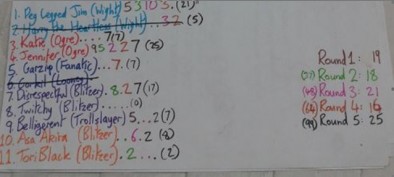 1. Peg Legged Jim (Wight) 5 3 10 3. (21)
2. Harry the Heartless (Wight) ... 3 2 (5)
3. Katie (Ogre).... 7 (7)
4. Jennifer (Ogre) 9 5 2 2 7 (25)
5. Garziq (Fanatic)... 7. (7)
7. Disrespectful (Blitzer). 8. 2 7 (17)
8. Twitchy (Blitzer)..... (0)
9. Belligerent (Trollslayer) 5... 2 (7)
10. Asa Akira (Blitzer)... 6. 2 (8)
11. Tori Black (Blitzer). 2 ... (2)
Round 1: 19
Round 2: 18
Round 3: 21
Round 4: 16
Round 5: 25